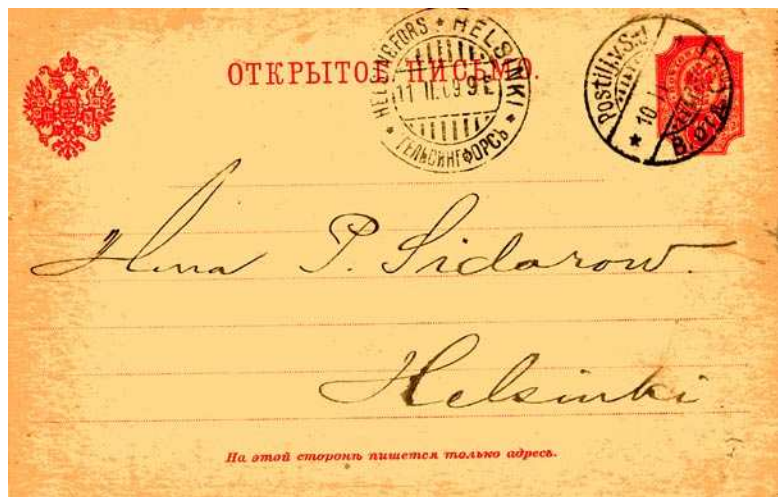 ОТКРЫТОЕ ПИСЬМО.
HELSINGFORS * HELSINKI *
11 II.09 9 E
* ГЕЛЬСИНГФОРСЪ *
Postilj.v.S:
10
В. отд.
P. Sidorow.
Helsinki.
На этой сторонѣ пишется только адресъ.